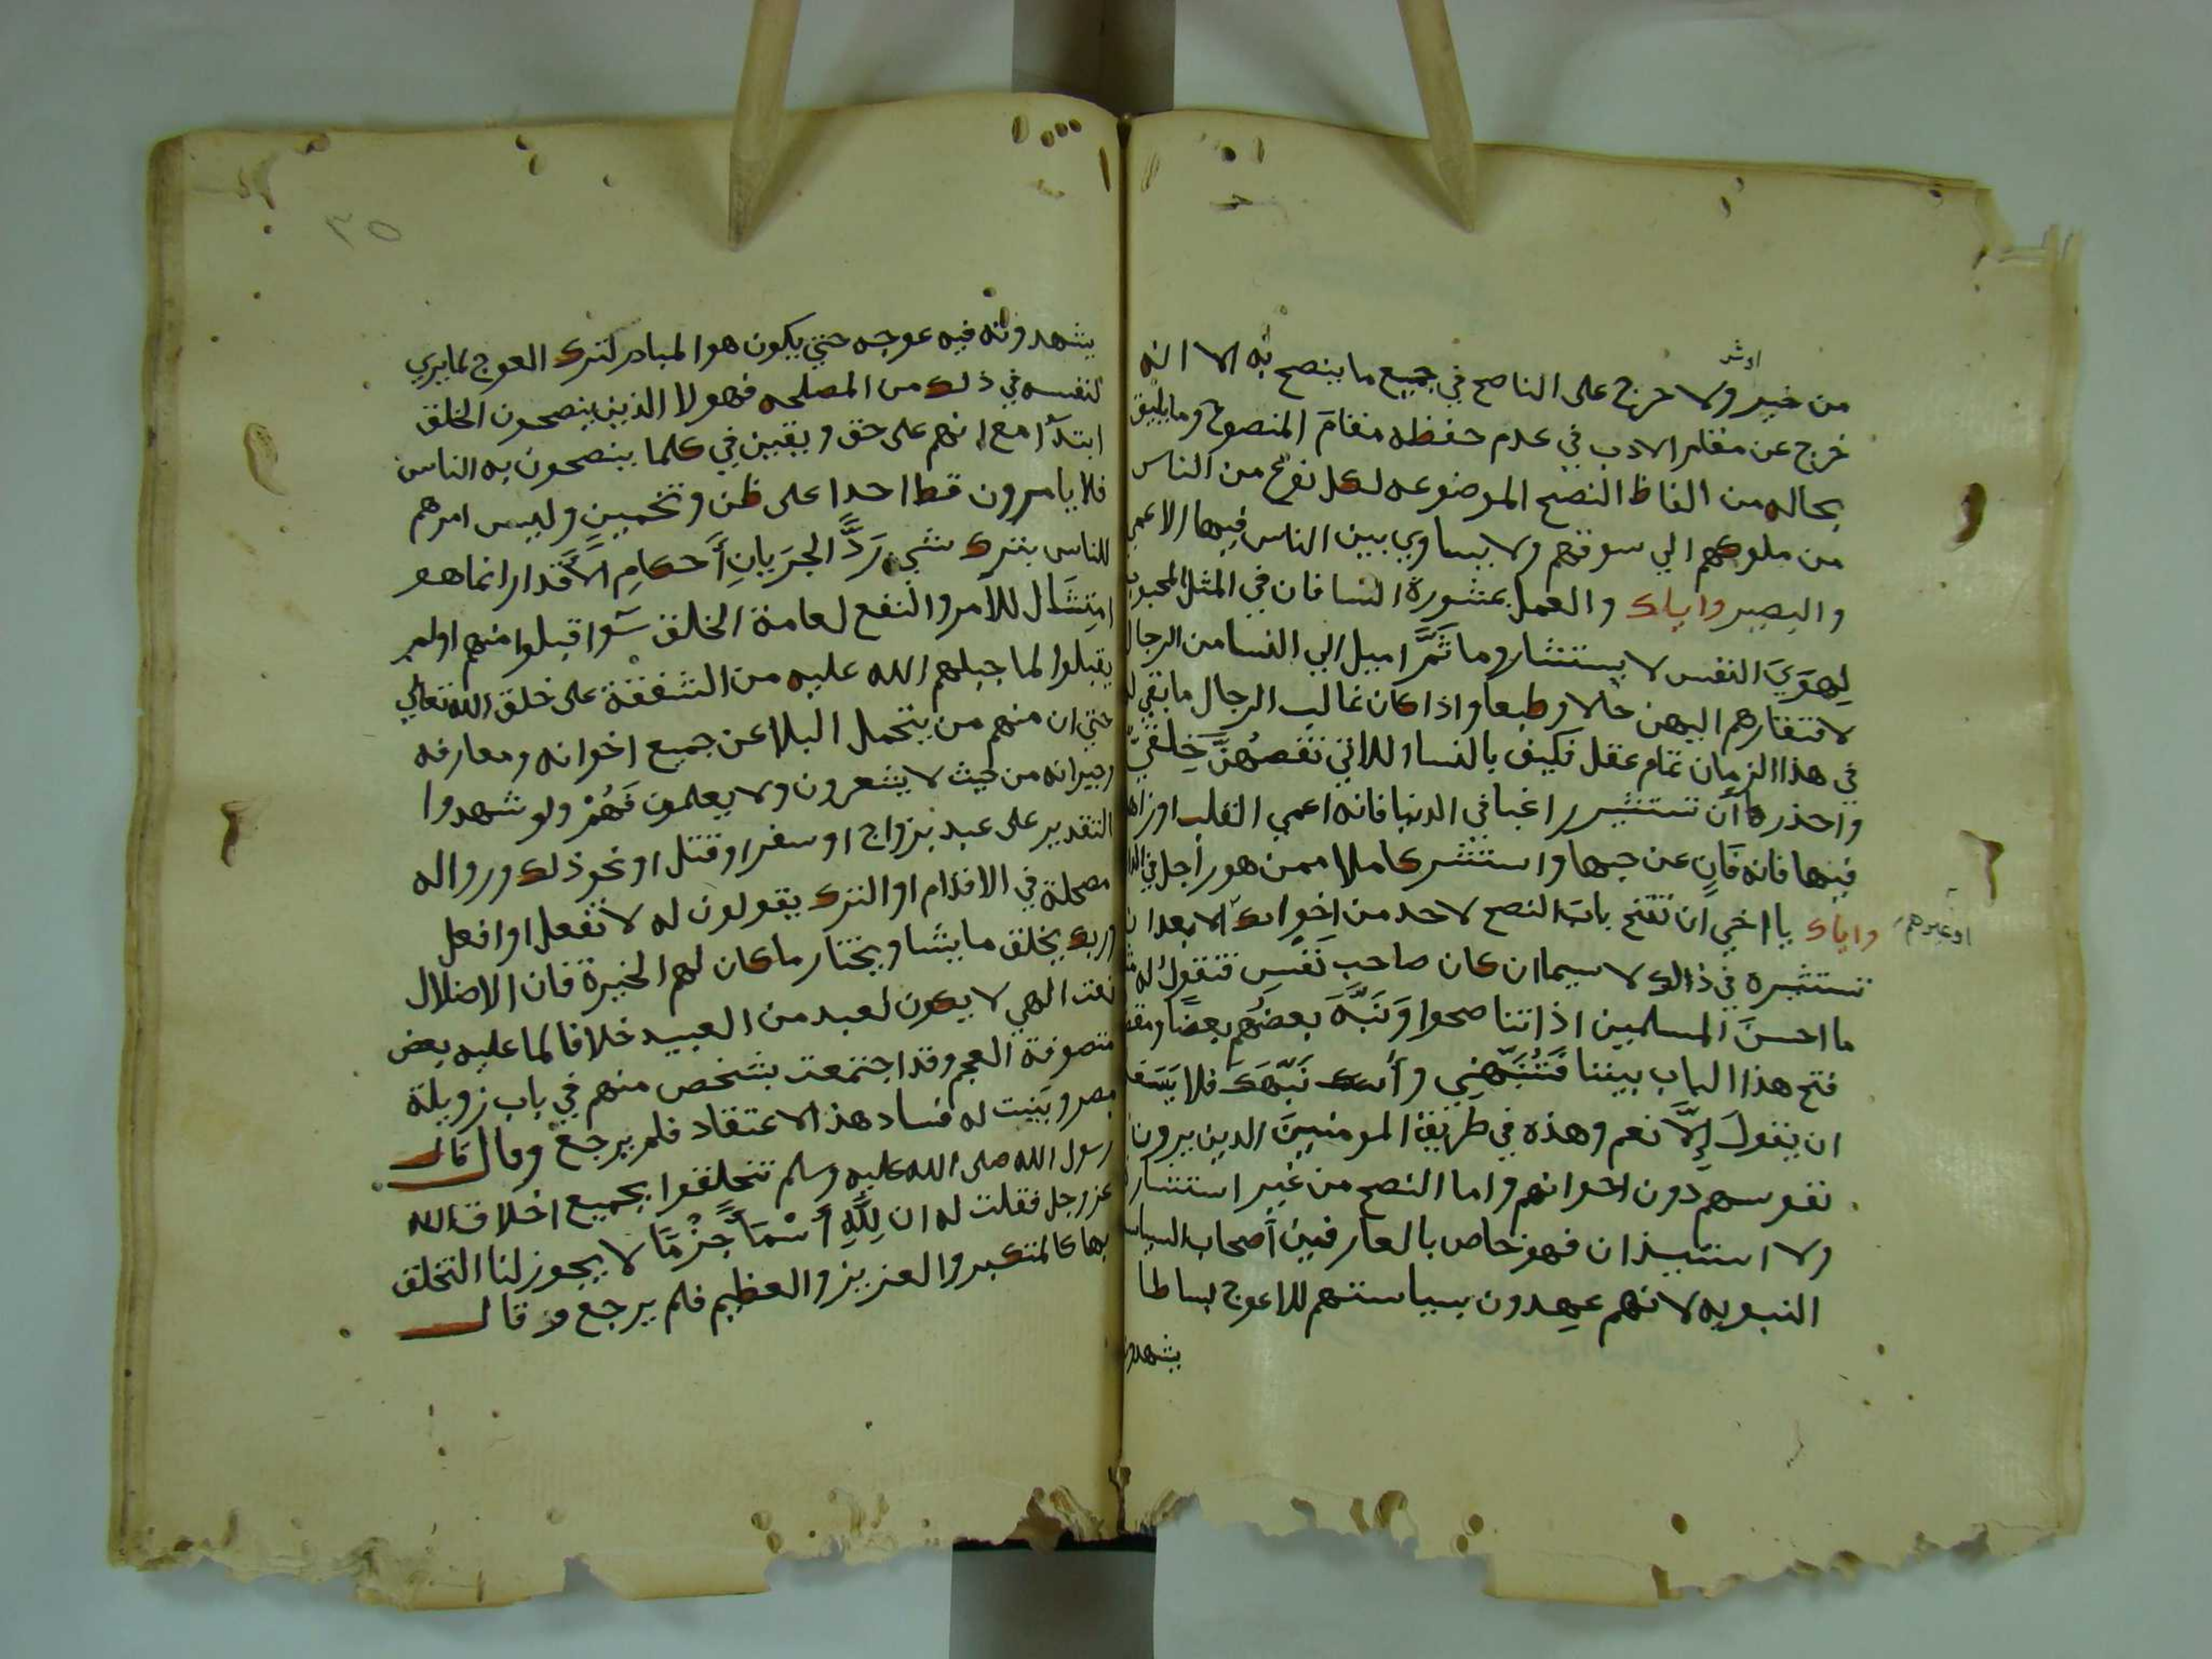 من خير او شر ولا حرج على الناصح في جميع ما ينصح به الا انه
خرج عن مقام الادب في عدم حفظه مقام المنصوح وما يليق
بحاله من الفاظ النصح الموضوعه لكل نوع من الناس
من ملوكهم الي سوقتهم ولا يساوي بين الناس فيها الا اعمي
والبصير واياك والعمل بمشورة النسا فان في المثل المحبوب
لهوي النفس لا يستشار وما ثم اميل الي النسا من الرجال
لافتقارهم اليهن حالا وطبعا واذا كان غالب الرجال ما بقي له
في هذا الزمان تمام عقل فكيف بالنسا اللاتي نقصهن خلقي
واحذر ان تستشير راغبا في الدنيا فانه اعمي القلب او زاهدا
فيها فانه فان عن حبها واستشر كاملا ممن هو راجل في
واياك يا اخي ان تفتح باب النصح لاحد من اخوانك الا بعد ان
او غيرهم
تستشيره في ذالك لا سيما ان كان صاحب نفس فتقول له
ما احسن المسلمين اذا تناصحوا ونبه بعضهم بعضا
فتح هذا الباب بيننا فتنبهني وأنبهك فلا يسعه
ان يقول إلا نعم وهذه في طريق المومنين الدين يرون
نفوسهم دون اخوانهم واما النصح من غير استشارة
ولا استيذان فهو خاص بالعارفين أصحاب السياسة
النبويه لانهم يمهدون بسياستهم للاعوج بساطا
يشهدونه
٣٥
يشهدونه فيه عوجه حتي يكون هو المبادر لترك العوج لما يري
لنفسه في ذلك من المصلحه فهولا الذين ينصحون الخلق
ابتدآ مع انهم على حق ويقين في كلما ينصحون به الناس
فلا يامرون قط احدا على ظن وتخمين وليس امرهم
للناس بترك شي ردا لجريان أحكام الاقدار انما هو
امتثال للامر والنفع لعامة الخلق سوا قبلوا منهم او لم
يقبلوا لما جبلهم الله عليه من الشفقة على خلق الله تعالي
حتي ان منهم من يتحمل البلا عن جميع اخوانه ومعارفه
وجيرانه من حيث لا يشعرون ولا يعلمون فهم ولو شهدوا
التقدير على عبد بزواج او سفر او قتل او نحو ذلك وروا له
مصحلة في الاقدام او الترك يقولون له لا تفعل او افعل
وربك يخلق ما يشا ويختار ما كان لهم الخيرة فان الاضلال
نعت الهي لا يكون لعبد من العبيد خلافا لما عليه بعض
متصوفة العجم وقد اجتمعت بشخص منهم في باب زويلة
بمصر وبينت له فساد هذا الاعتقاد فلم يرجع وقال قال
رسول الله صلى الله عليه وسلم تخلقوا بجميع اخلاق الله
عز وجل فقلت له ان لله أسما جزما لا يجوز لنا التخلق
بها كالمتكبر والعزيز والعظيم فلم يرجع وقال